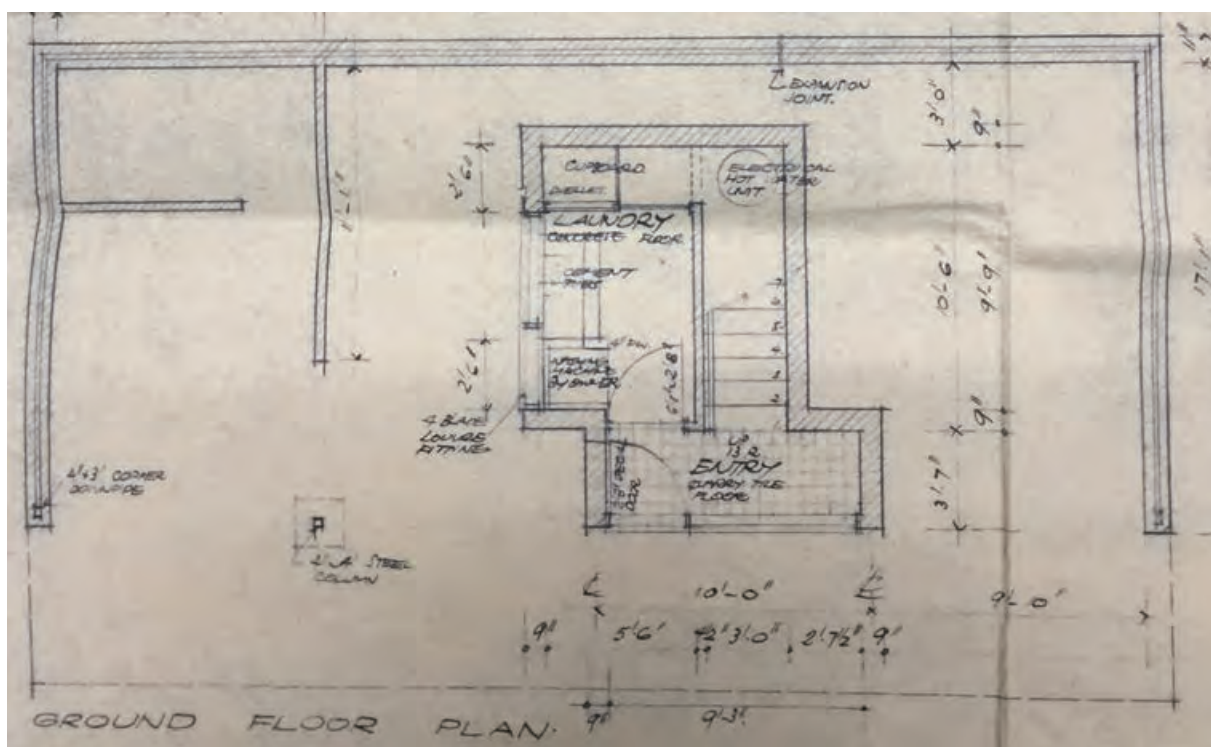 11"
EXPANSION
JOINT.
3'-0"
9"
2'-6"
CUPBOARD
ELECTRICAL
HOT WATER
UNIT
LAUNDRY
CONCRETE FLOOR
CEMENT
TUBS
10'-6"
9'-9"
17'-1"
2'-6"
WASHING
MACHINE
BY OWNER
4 BLADE
LOUVRE
FITTING
9"
UP
13 R
ENTRY
QUARRY TILE
FLOOR
DOOR
3'-7"
4"x3" CORNER
DOWNPIPE
STEEL
COLUMN
10'-0"
9'-0"
9" 5'6" 4½" 3'-0" 2'-7½" 9"
GROUND FLOOR PLAN.
9" 9'-3"